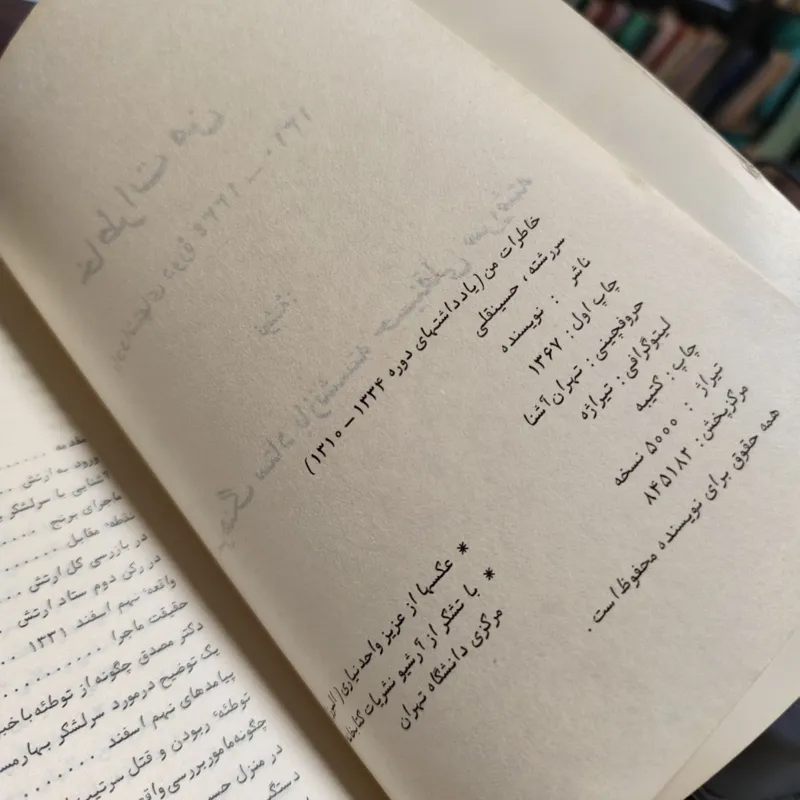 خاطرات من (یادداشتهای دوره ۱۳۳۴ – ۱۳۱۰)
سررشته، حسینقلی
ناشر : نویسنده
چاپ اول: ۱۳۶۷
حروفچینی: تهران آشنا
لیتوگرافی: تیراژه
چاپ: کتیبه
تیراژ : ۵۰۰۰ نسخه
مرکزپخش: ۸۴۵۱۸۲
همه حقوق برای نویسنده محفوظ است .
* عکسها از عزیز واحدنیاری
* با تشکر از آرشیو نشریات
مرکزی دانشگاه تهران
ورود به ارتش
آشنایی با سرلشکر
ماجرای برنج
نقطه مقابل
در بازرسی کل ارتش
در رکن دوم ستاد ارتش
واقعه نهم اسفند ۱۳۳۱
حقیقت ماجرا
دکتر مصدق چگونه از توطئه باخبر
یک توضیح درمورد سرلشکر بهارمست
پیامدهای نهم اسفند
توطئه ربودن و قتل سرتیپ
چگونه مامور بررسی
در منزل